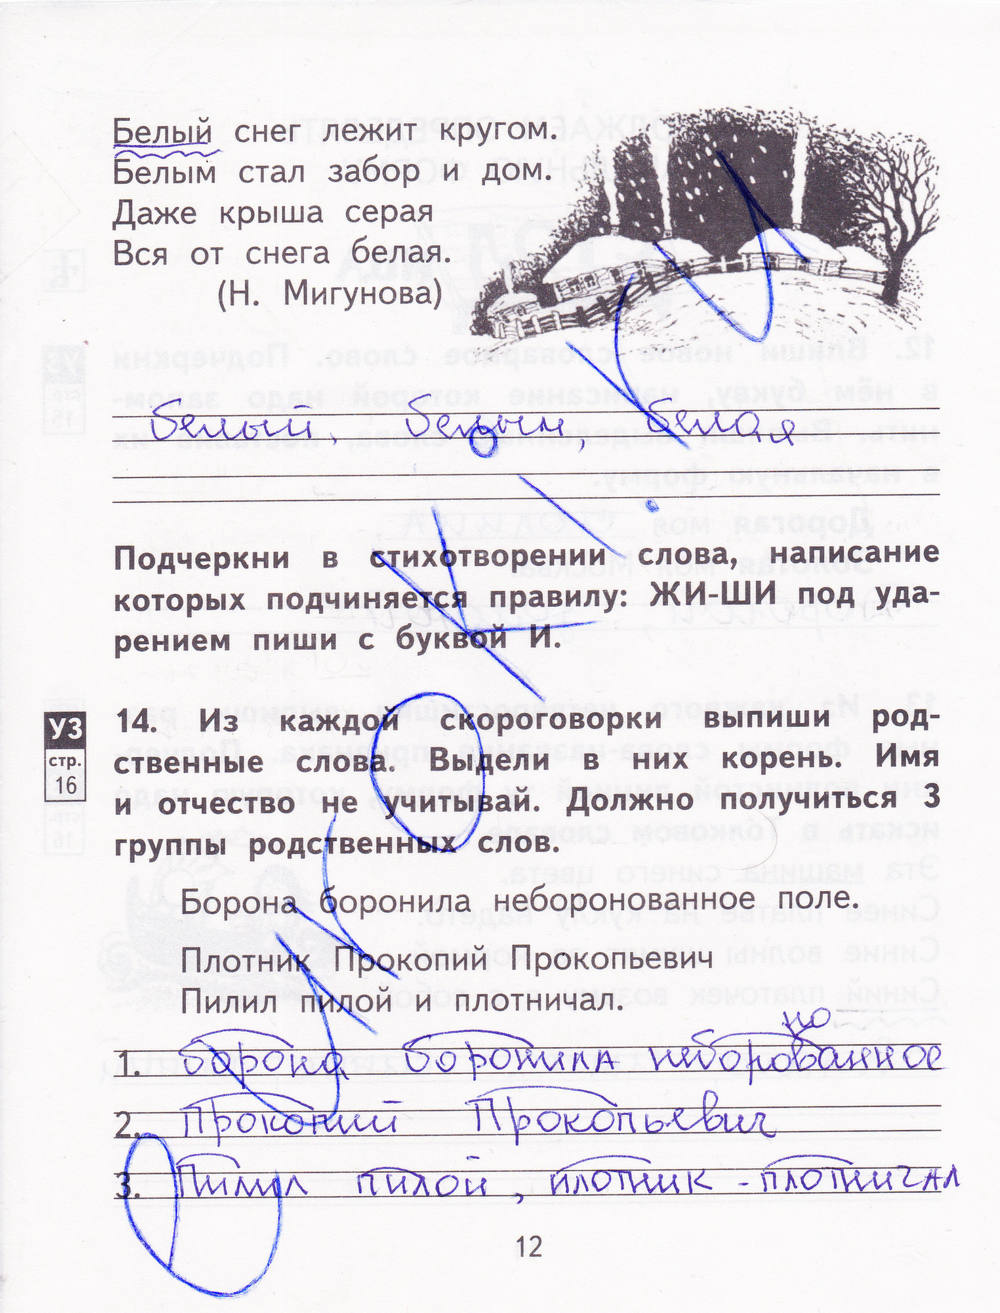 Белый снег лежит кругом.
Белым стал забор и дом.
Даже крыша серая
Вся от снега белая.
(Н. Мигунова)
белый, белым, белая
Подчеркни в стихотворении слова, написание
которых подчиняется правилу: ЖИ-ШИ под уда-
рением пиши с буквой И.
УЗ
стр.
16
14. Из каждой скороговорки выпиши род-
ственные слова. Выдели в них корень. Имя
и отчество не учитывай. Должно получиться 3
группы родственных слов.
Борона боронила неборонованное поле.
Плотник Прокопий Прокопьевич
Пилил пилой и плотничал.
но
1. борона боронила неборованное
2. Прокопий Прокопьевич
3. Пилил пилой, плотник - плотничал
12